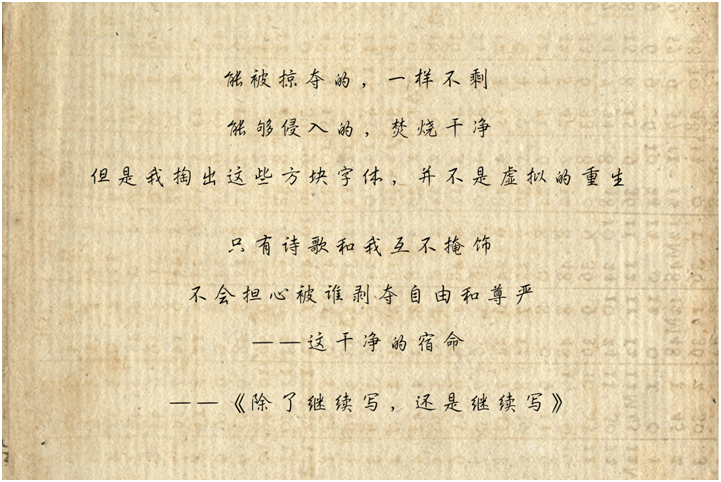 能被掠夺的，一样不剩
能够侵入的，焚烧干净
但是我掏出这些方块字体，并不是虚拟的重生
只有诗歌和我互不掩饰
不会担心被谁剥夺自由和尊严
——这干净的宿命
——《除了继续写，还是继续写》